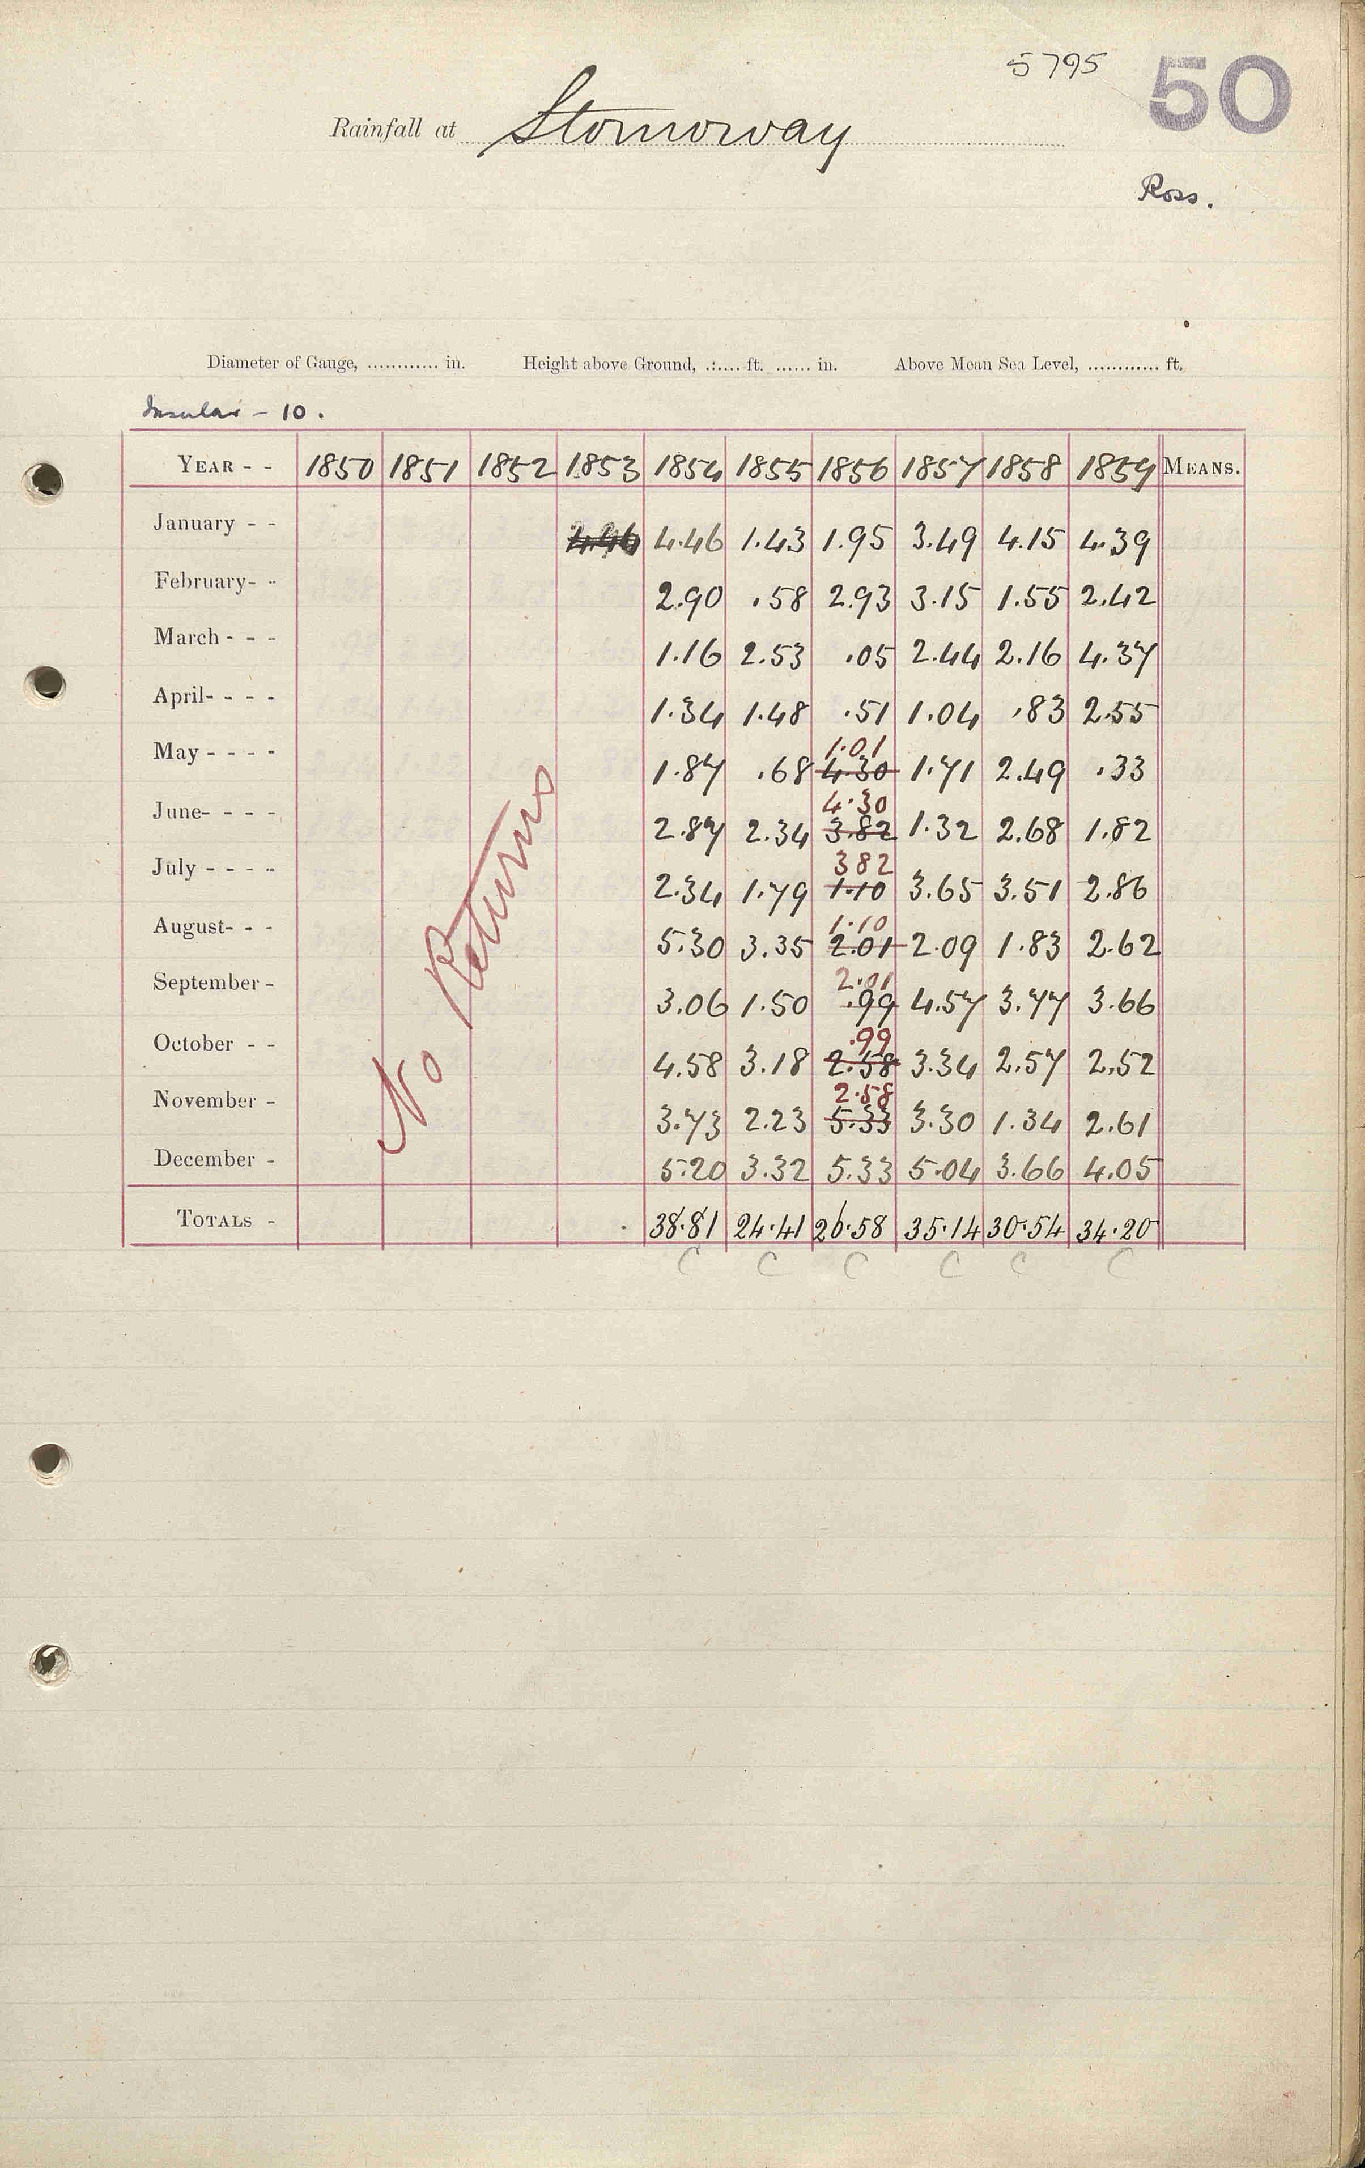 5795 50
Rainfall at Stornoway
Ross.
Diameter of Gauge, ............ in. Height above Ground, ...... ft. ...... in. Above Mean Sea Level, ............ ft.
Insular - 10.
YEAR - - 1850 1851 1852 1853 1854 1855 1856 1857 1858 1859 MEANS.
January - - 4.46 4.46 1.43 1.95 3.49 4.15 4.39
February- - 2.90 .58 2.93 3.15 1.55 2.42
March - - - 1.16 2.53 .05 2.44 2.16 4.37
April- - - - 1.34 1.48 .51 1.04 .83 2.55
1.01
May - - - - 1.87 .68 4.30 1.71 2.49 .33
4.30
June- - - - 2.87 2.34 3.82 1.32 2.68 1.82
382
July - - - - 2.34 1.79 1.10 3.65 3.51 2.86
1.10
August- - - 5.30 3.35 2.01 2.09 1.83 2.62
2.01
September - 3.06 1.50 .99 4.57 3.77 3.66
.99
October - - 4.58 3.18 2.58 3.34 2.57 2.52
2.58
November - 3.73 2.23 5.33 3.30 1.34 2.61
December - 5.20 3.32 5.33 5.04 3.66 4.05
TOTALS - 38.81 24.41 26.58 35.14 30.54 34.20
C C C C C C
No Returns